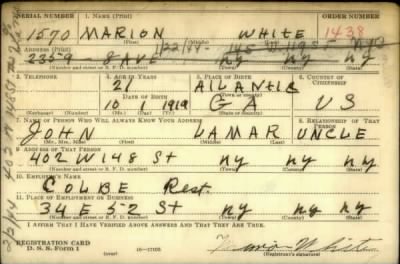 SERIAL NUMBER 1. NAME (Print) ORDER NUMBER
1570 MARION WHITE 1438
(First) (Middle) (Last)
2. ADDRESS (Print)
2359 8 AVE NY NY NY
(Number and street or R. F. D. number) (Town) (County) (State)
3. TELEPHONE 4. AGE IN YEARS 5. PLACE OF BIRTH 6. COUNTRY OF CITIZENSHIP
21 ATLANTIC
DATE OF BIRTH
10 1 1919 GA US
(Mo.) (Day) (Yr.) (State or country)
7. NAME OF PERSON WHO WILL ALWAYS KNOW YOUR ADDRESS 8. RELATIONSHIP OF THAT PERSON
JOHN LAMAR UNCLE
(Mr., Mrs., Miss) (First) (Middle) (Last)
9. ADDRESS OF THAT PERSON
402 W 148 St NY NY NY
(Number and street or R. F. D. number) (Town) (County) (State)
10. EMPLOYER'S NAME
COLBE Rest.
11. PLACE OF EMPLOYMENT OR BUSINESS
34 E 52 St NY NY NY
(Number and street or R. F. D. number) (Town) (County) (State)
I AFFIRM THAT I HAVE VERIFIED ABOVE ANSWERS AND THAT THEY ARE TRUE.
REGISTRATION CARD
D. S. S. Form 1 16-17105 Marion White
(over) (Registrant's signature)